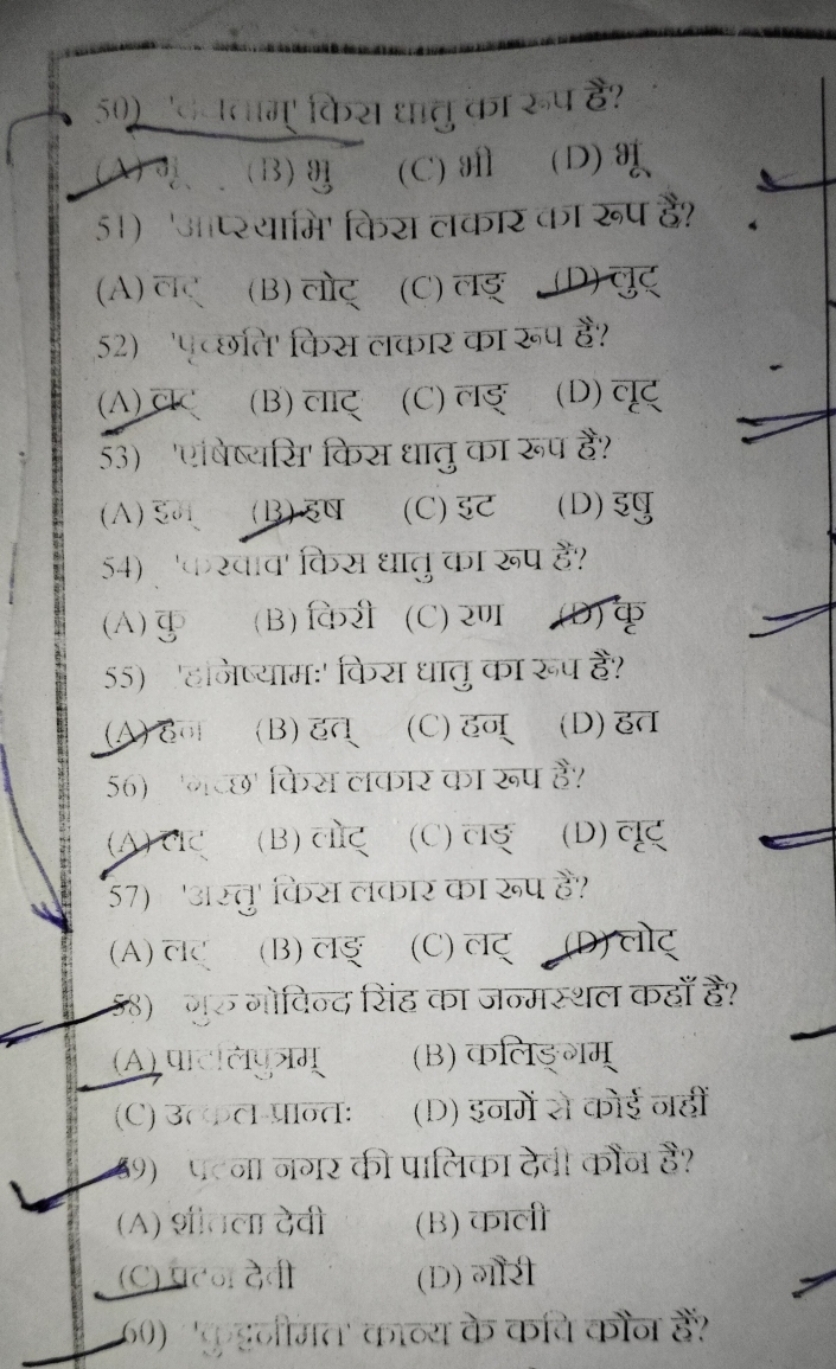 50) किस धातु का रूप है?
(A) (B) भु (C) भी (D) भूं
51) 'आप्स्यामि' किस लकार का रूप है?
(A) लट् (B) लोट् (C) लङ् (D) लुट्
52) 'पृच्छति' किस लकार का रूप है?
(A) लट् (B) लाट् (C) लङ् (D) लृट्
53) 'एषिष्यसि' किस धातु का रूप है?
(A) इम् (B) इष (C) इट (D) इषु
54) 'करवाव' किस धातु का रूप है?
(A) कु (B) किरी (C) रण (D) कृ
55) 'हनिष्यामः' किस धातु का रूप है?
(A) हन (B) हत् (C) हन् (D) हत
56) 'गच्छ' किस लकार का रूप है?
(A) लट् (B) लोट् (C) लङ् (D) लृट्
57) 'अस्तु' किस लकार का रूप है?
(A) लट् (B) लङ् (C) लट् (D) लोट्
58) गुरु गोविन्द सिंह का जन्मस्थल कहाँ है?
(A) पाटलिपुत्रम् (B) कलिङ्गम्
(C) उत्कल-प्रान्तः (D) इनमें से कोई नहीं
59) पटना नगर की पालिका देवी कौन है?
(A) शीतला देवी (B) काली
(C) पटन देवी (D) गौरी
60) 'कुट्टनीमत' काव्य के कवि कौन हैं?